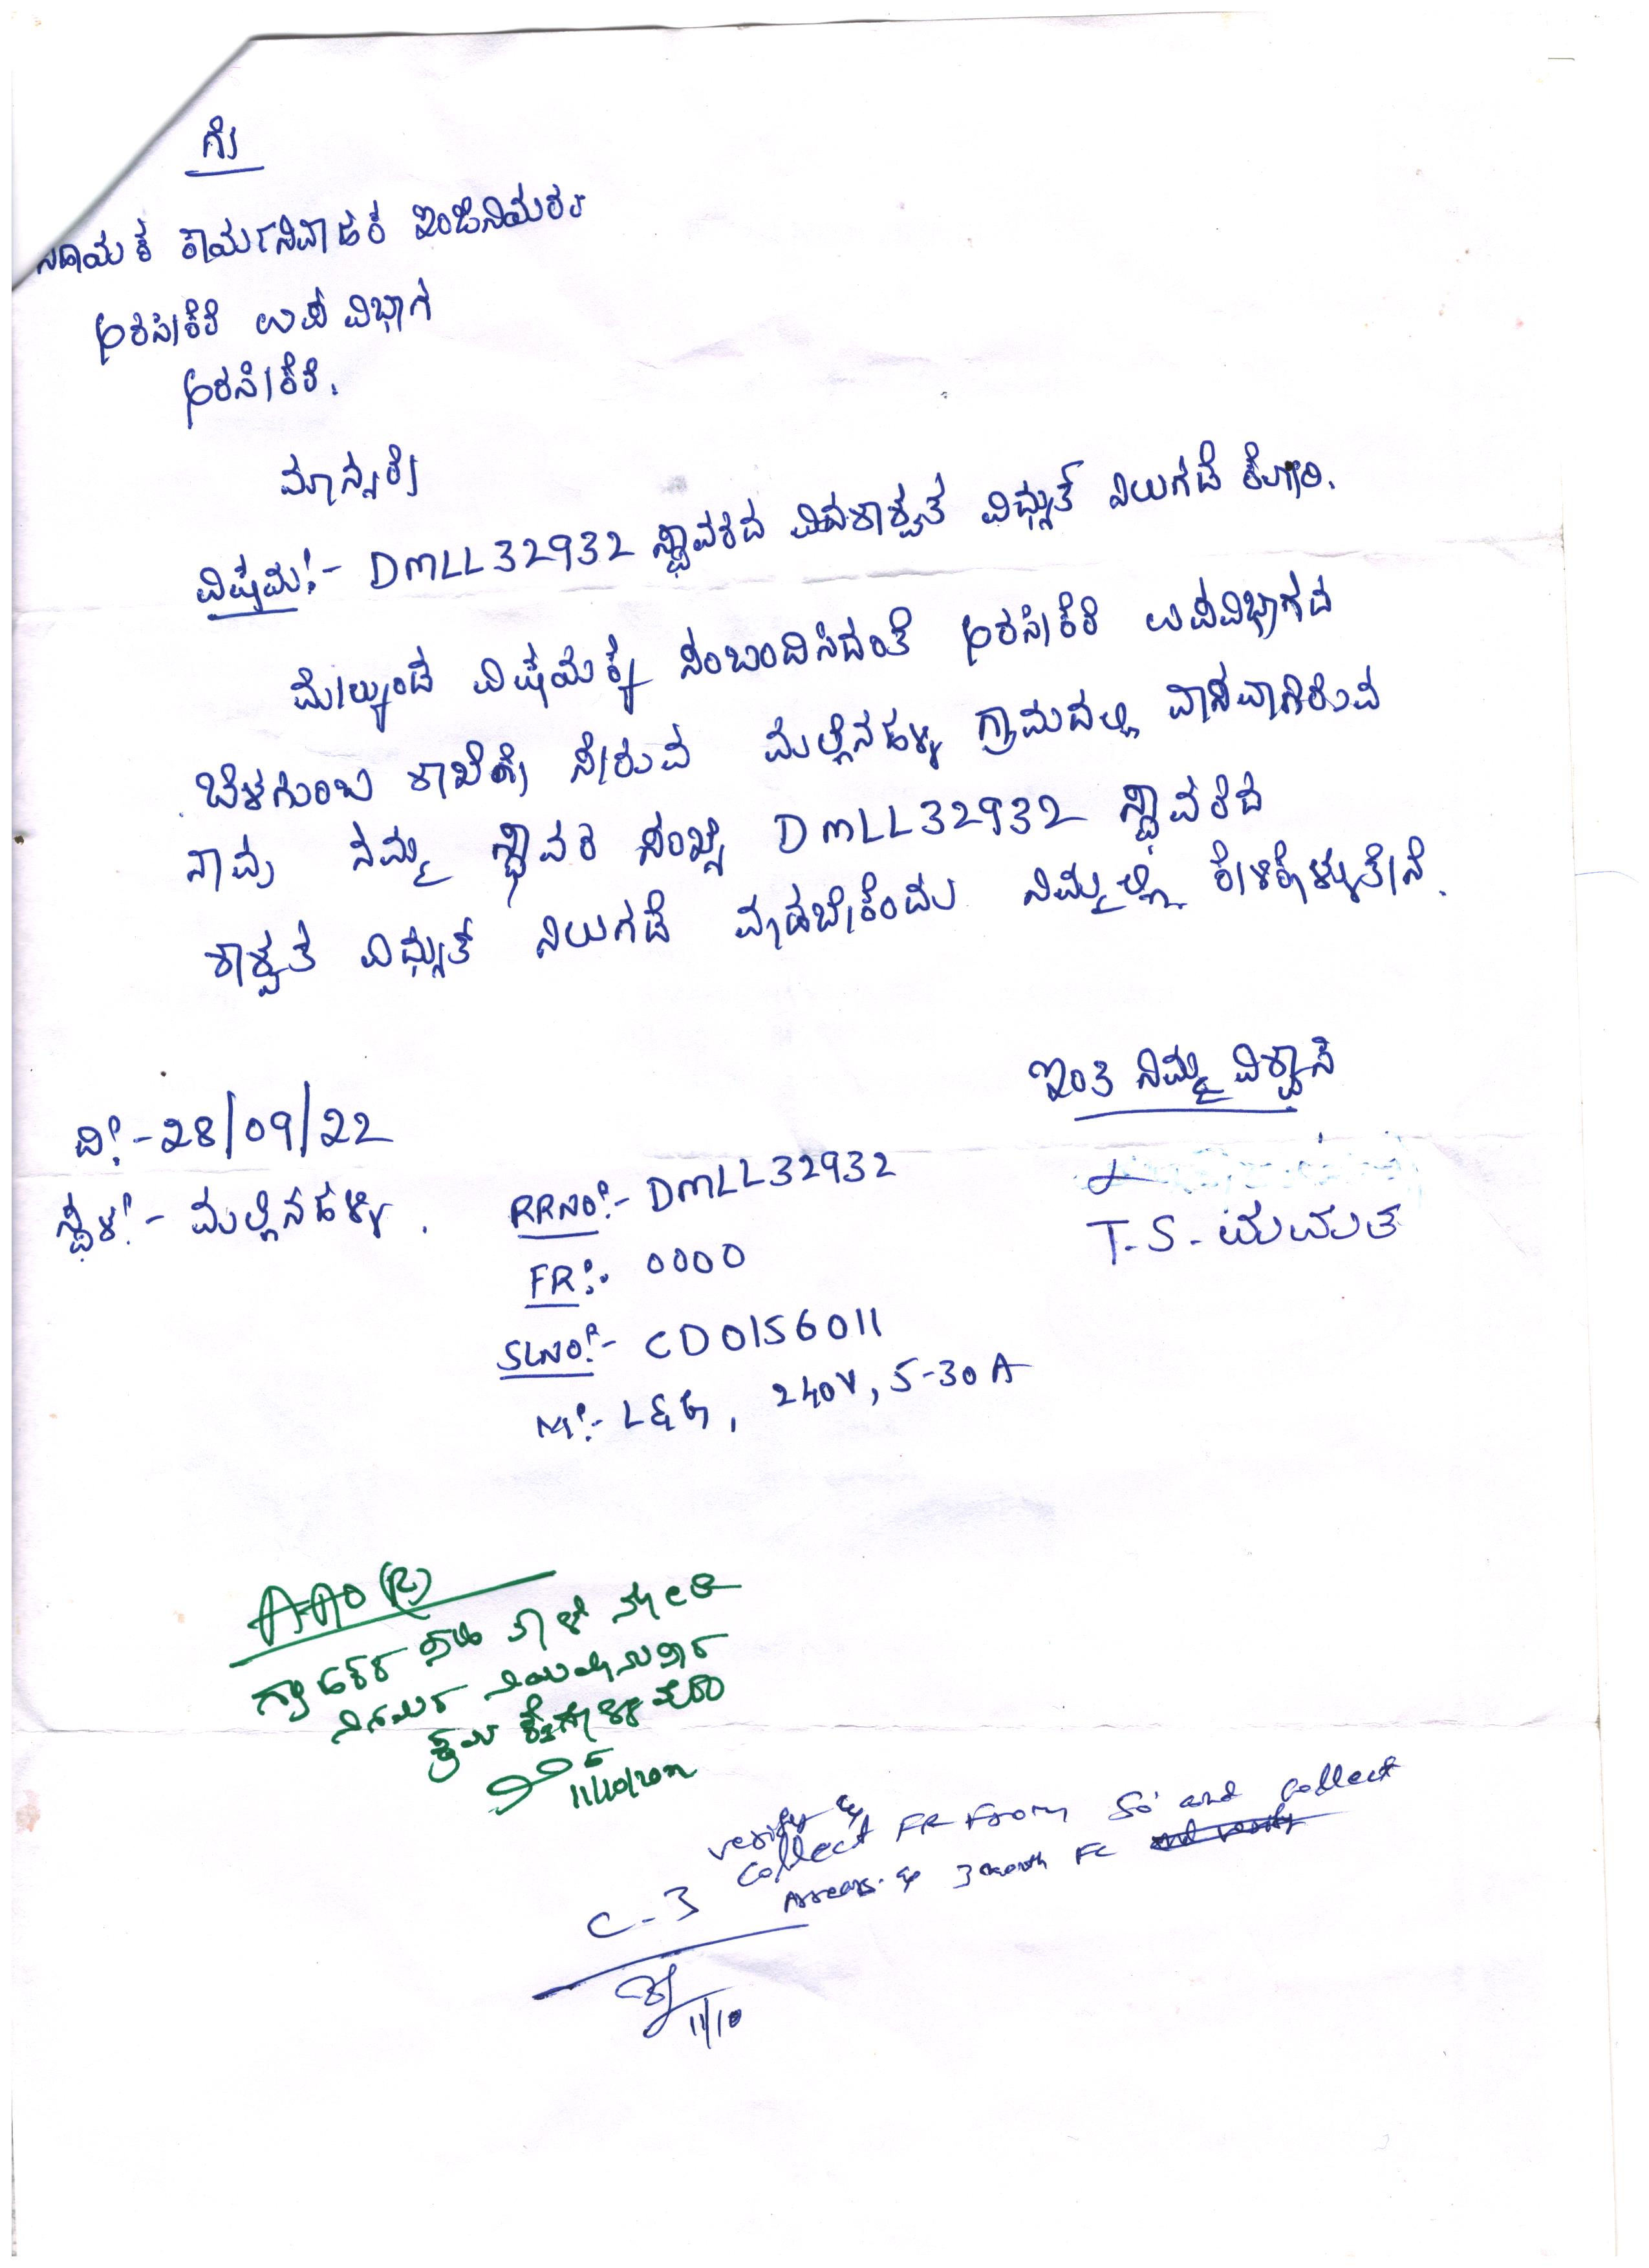 ಗೆ
ಸಹಾಯಕ ಕಾರ್ಯನಿರ್ವಾಹಕ ಇಂಜಿನಿಯರರು
ಅರಸೀಕೆರೆ ಉಪ ವಿಭಾಗ
ಅರಸೀಕೆರೆ.
ಮಾನ್ಯರೆ
ವಿಷಯ:- DMLL32932 ಸ್ಥಾವರದ ಶಾಶ್ವತ ವಿದ್ಯುತ್ ನಿಲುಗಡೆ ಕೋರಿ.
ಮೇಲ್ಕಂಡ ವಿಷಯಕ್ಕೆ ಸಂಬಂದಿಸಿದಂತೆ ಅರಸೀಕೆರೆ ಉಪವಿಭಾಗದ
ಬೆಳಗುಂಬ ಶಾಖೆಗೆ ಸೇರುವ ಮಲ್ಲೇನಹಳ್ಳಿ ಗ್ರಾಮದಲ್ಲಿ ವಾಸವಾಗಿರುವ
ನಾವು ನಮ್ಮ ಸ್ಥಾವರ ಸಂಖ್ಯೆ DMLL32932 ಸ್ಥಾವರದ
ಶಾಶ್ವತ ವಿದ್ಯುತ್ ನಿಲುಗಡೆ ಮಾಡಬೇಕೆಂದು ನಿಮ್ಮಲ್ಲಿ ಕೇಳಿಕೊಳ್ಳುತೇನೆ.
ಇಂತಿ ನಿಮ್ಮ ವಿಶ್ವಾಸಿ
ದಿ:-28/09/22
ಸ್ಥಳ:- ಮಲ್ಲೇನಹಳ್ಳಿ.
T.S.ಮಮತ
RRNO:- DMLL32932
FR:- 0000
SLNO:- CD0156011
M:- L&G, 240V, 5-30A
AAO(R)
ಗ್ರಾಹಕರ
ನಿಗಮದ ನಿಯಮಾನುಸಾರ
ಕ್ರಮ ಕೈಗೊಳ್ಳುವುದು
verify &
collect FR from SO and collect
Arrears & 3 month FC and verify
C-3
11/10